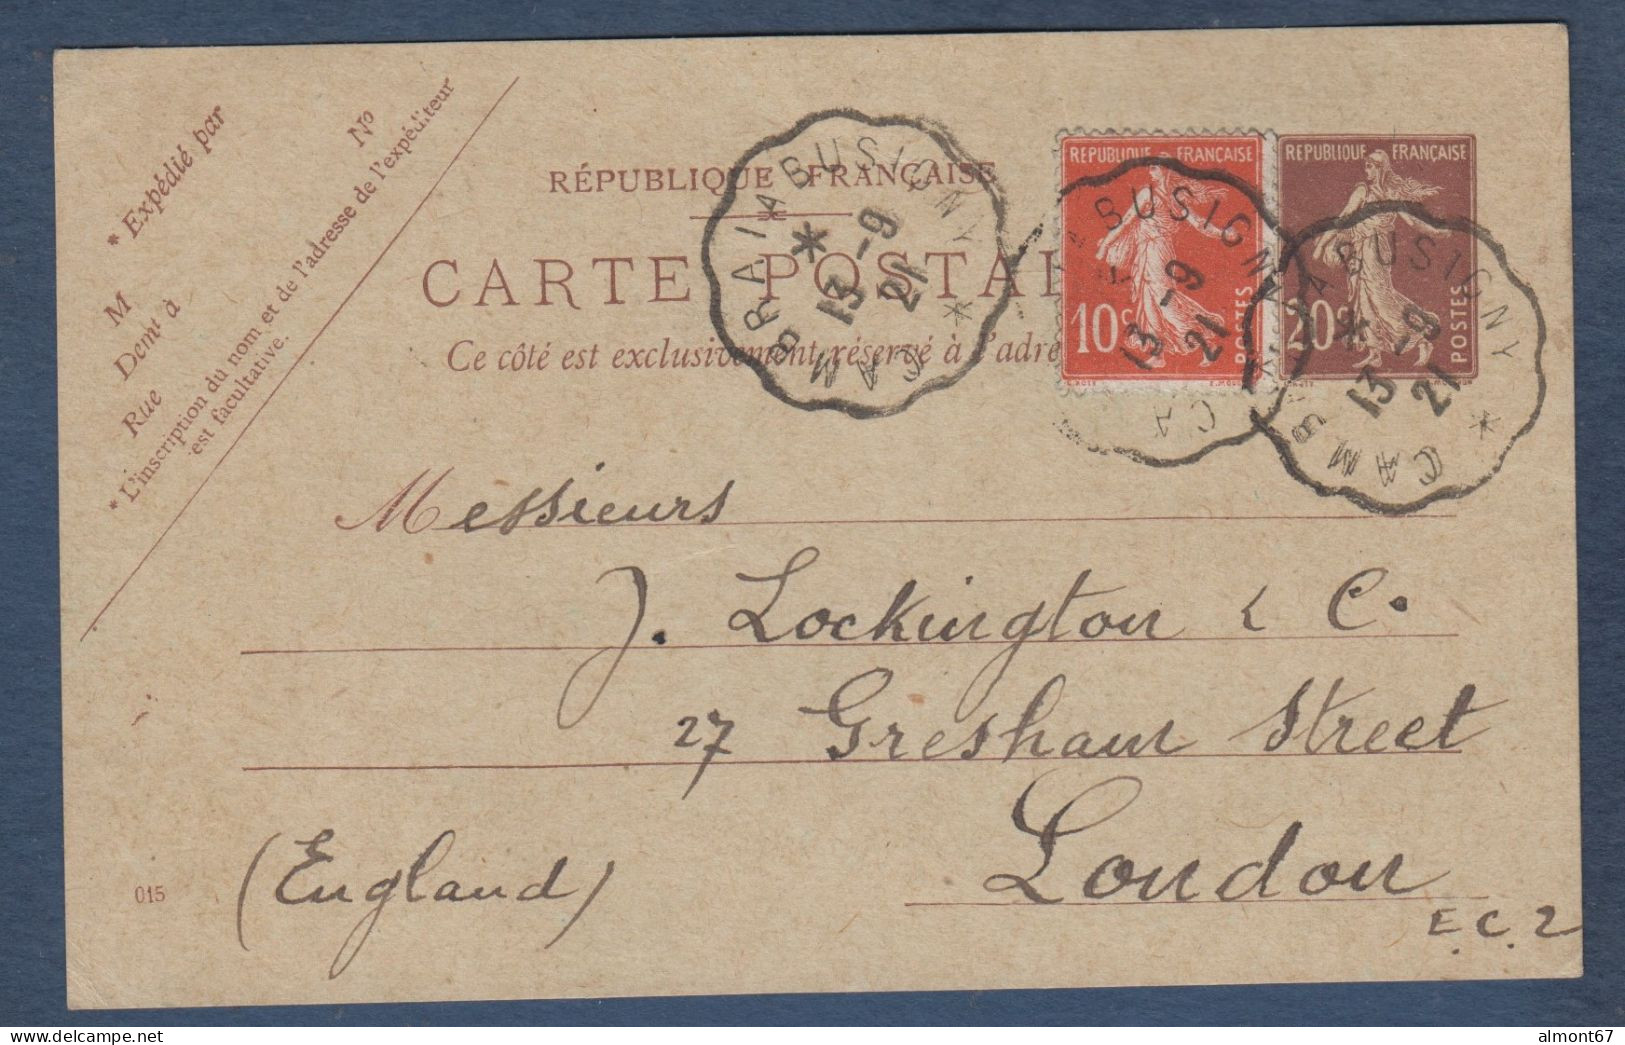 * Expédié par
Nº
M
Demt à
Rue
* L'inscription du nom et de l'adresse de l'expéditeur
est facultative.
RÉPUBLIQUE FRANÇAISE
CARTE POSTAL
Ce côté est exclusivement réservé à l'adre
CAMBRAI A BUSIGNY
* 13 -9 21 *
REPUBLIQUE FRANÇAISE
10c
POSTES
BUSIGNY
13 -9 21
CA
REPUBLIQUE FRANÇAISE
20c
POSTES
CAMBRAI A BUSIGNY
* 13 -9 21 *
Messieurs
J. Lockington & C.
27 Gresham Street
London
(England)
E.C.2
015
almont67